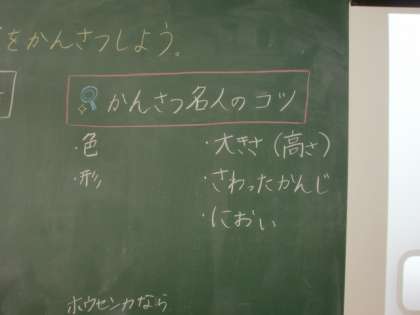 をかんさつしよう。
かんさつ名人のコツ
・色
・形
・大きさ(高さ)
・さわったかんじ
・におい
ホウセンカなら